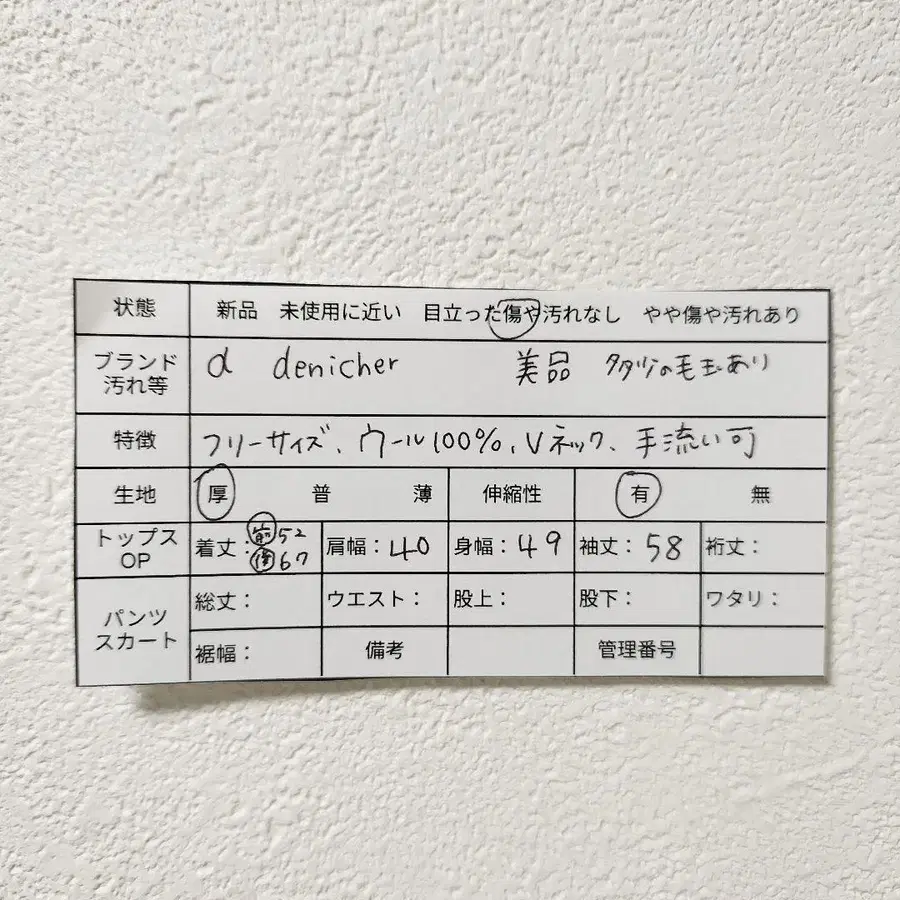 状態 新品 未使用に近い 目立った傷や汚れなし やや傷や汚れあり
ブランド汚れ等 d denicher 美品 タタツの毛玉あり
特徴 フリーサイズ、ウール100%、Vネック、手流い可
生地 厚 普 薄 伸縮性 有 無
トップスOP 着丈: 52 67 肩幅: 40 身幅: 49 袖丈: 58 裄丈:
パンツスカート 総丈: ウエスト: 股上: 股下: ワタリ:
裾幅: 備考 管理番号